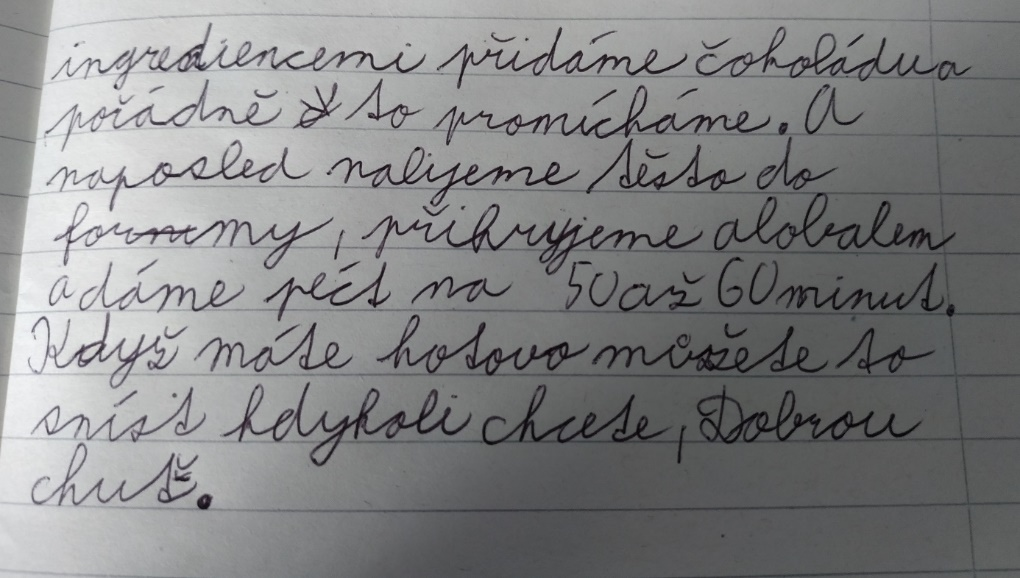 ingrediencemi přidáme čokoládu a
pořádně to promícháme. A
naposled nalijeme těsto do
formy, přikryjeme alobalem
a dáme péct na 50 až 60 minut.
Když máte hotovo můžete to
sníst kdykoli chcete, Dobrou
chuť.